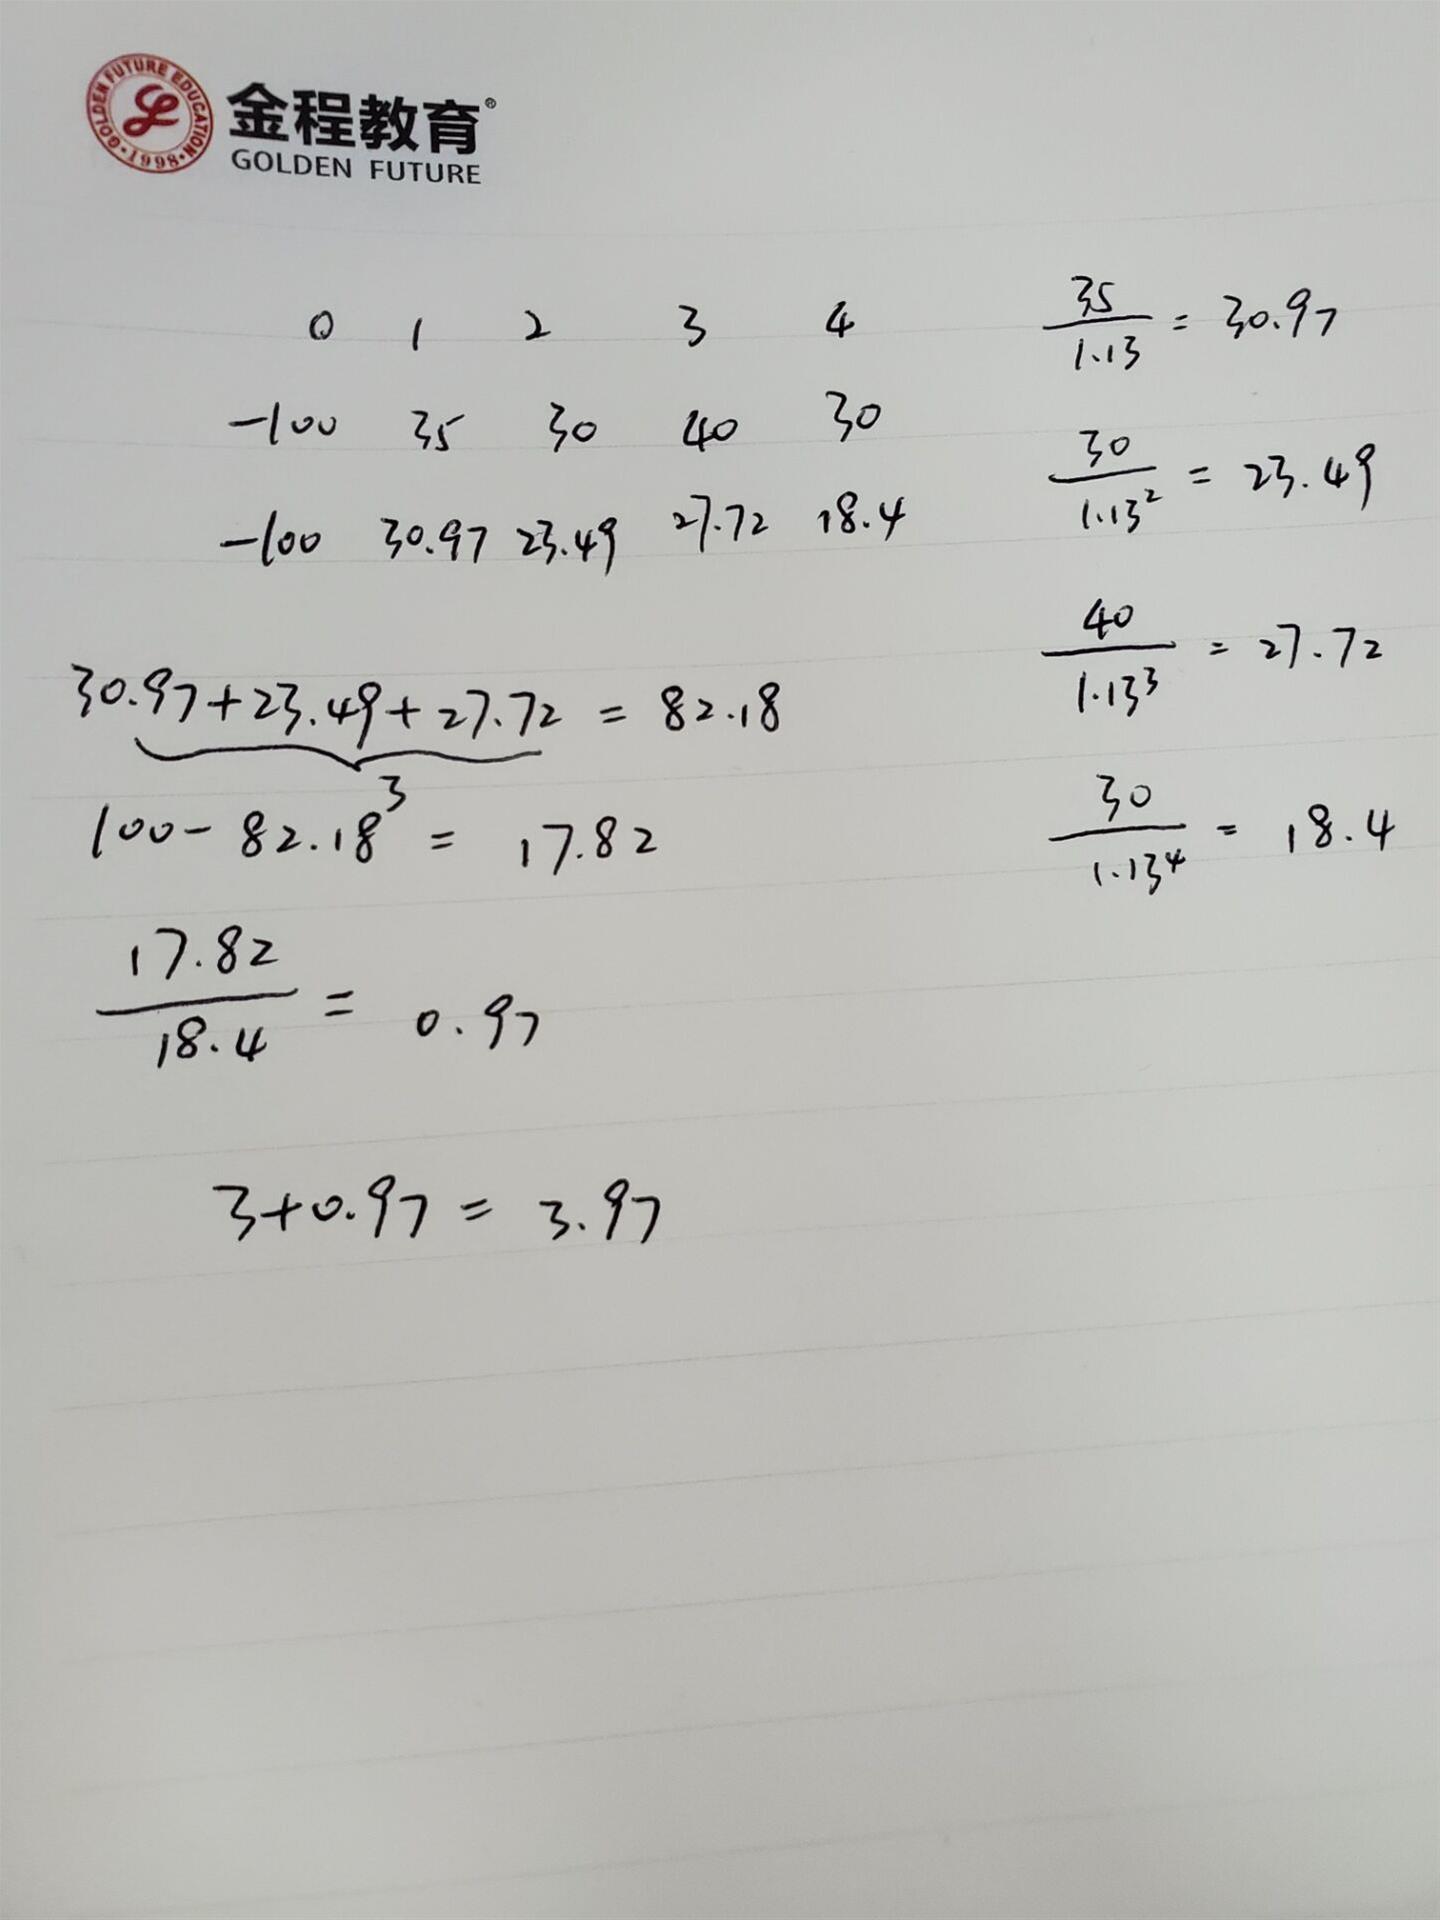 GOLDEN FUTURE EDUCATION
·1998·
金程教育®
GOLDEN FUTURE
0 1 2 3 4
-100 35 30 40 30
-100 30.97 23.49 27.72 18.4
30.97+23.49+27.72 = 82.18
3
100- 82.18 = 17.82
17.82
18.4
= 0.97
3+0.97 = 3.97
35
1.13
= 30.97
30
1.13²
= 23.49
40
1.13³
= 27.72
30
1.13⁴
= 18.4